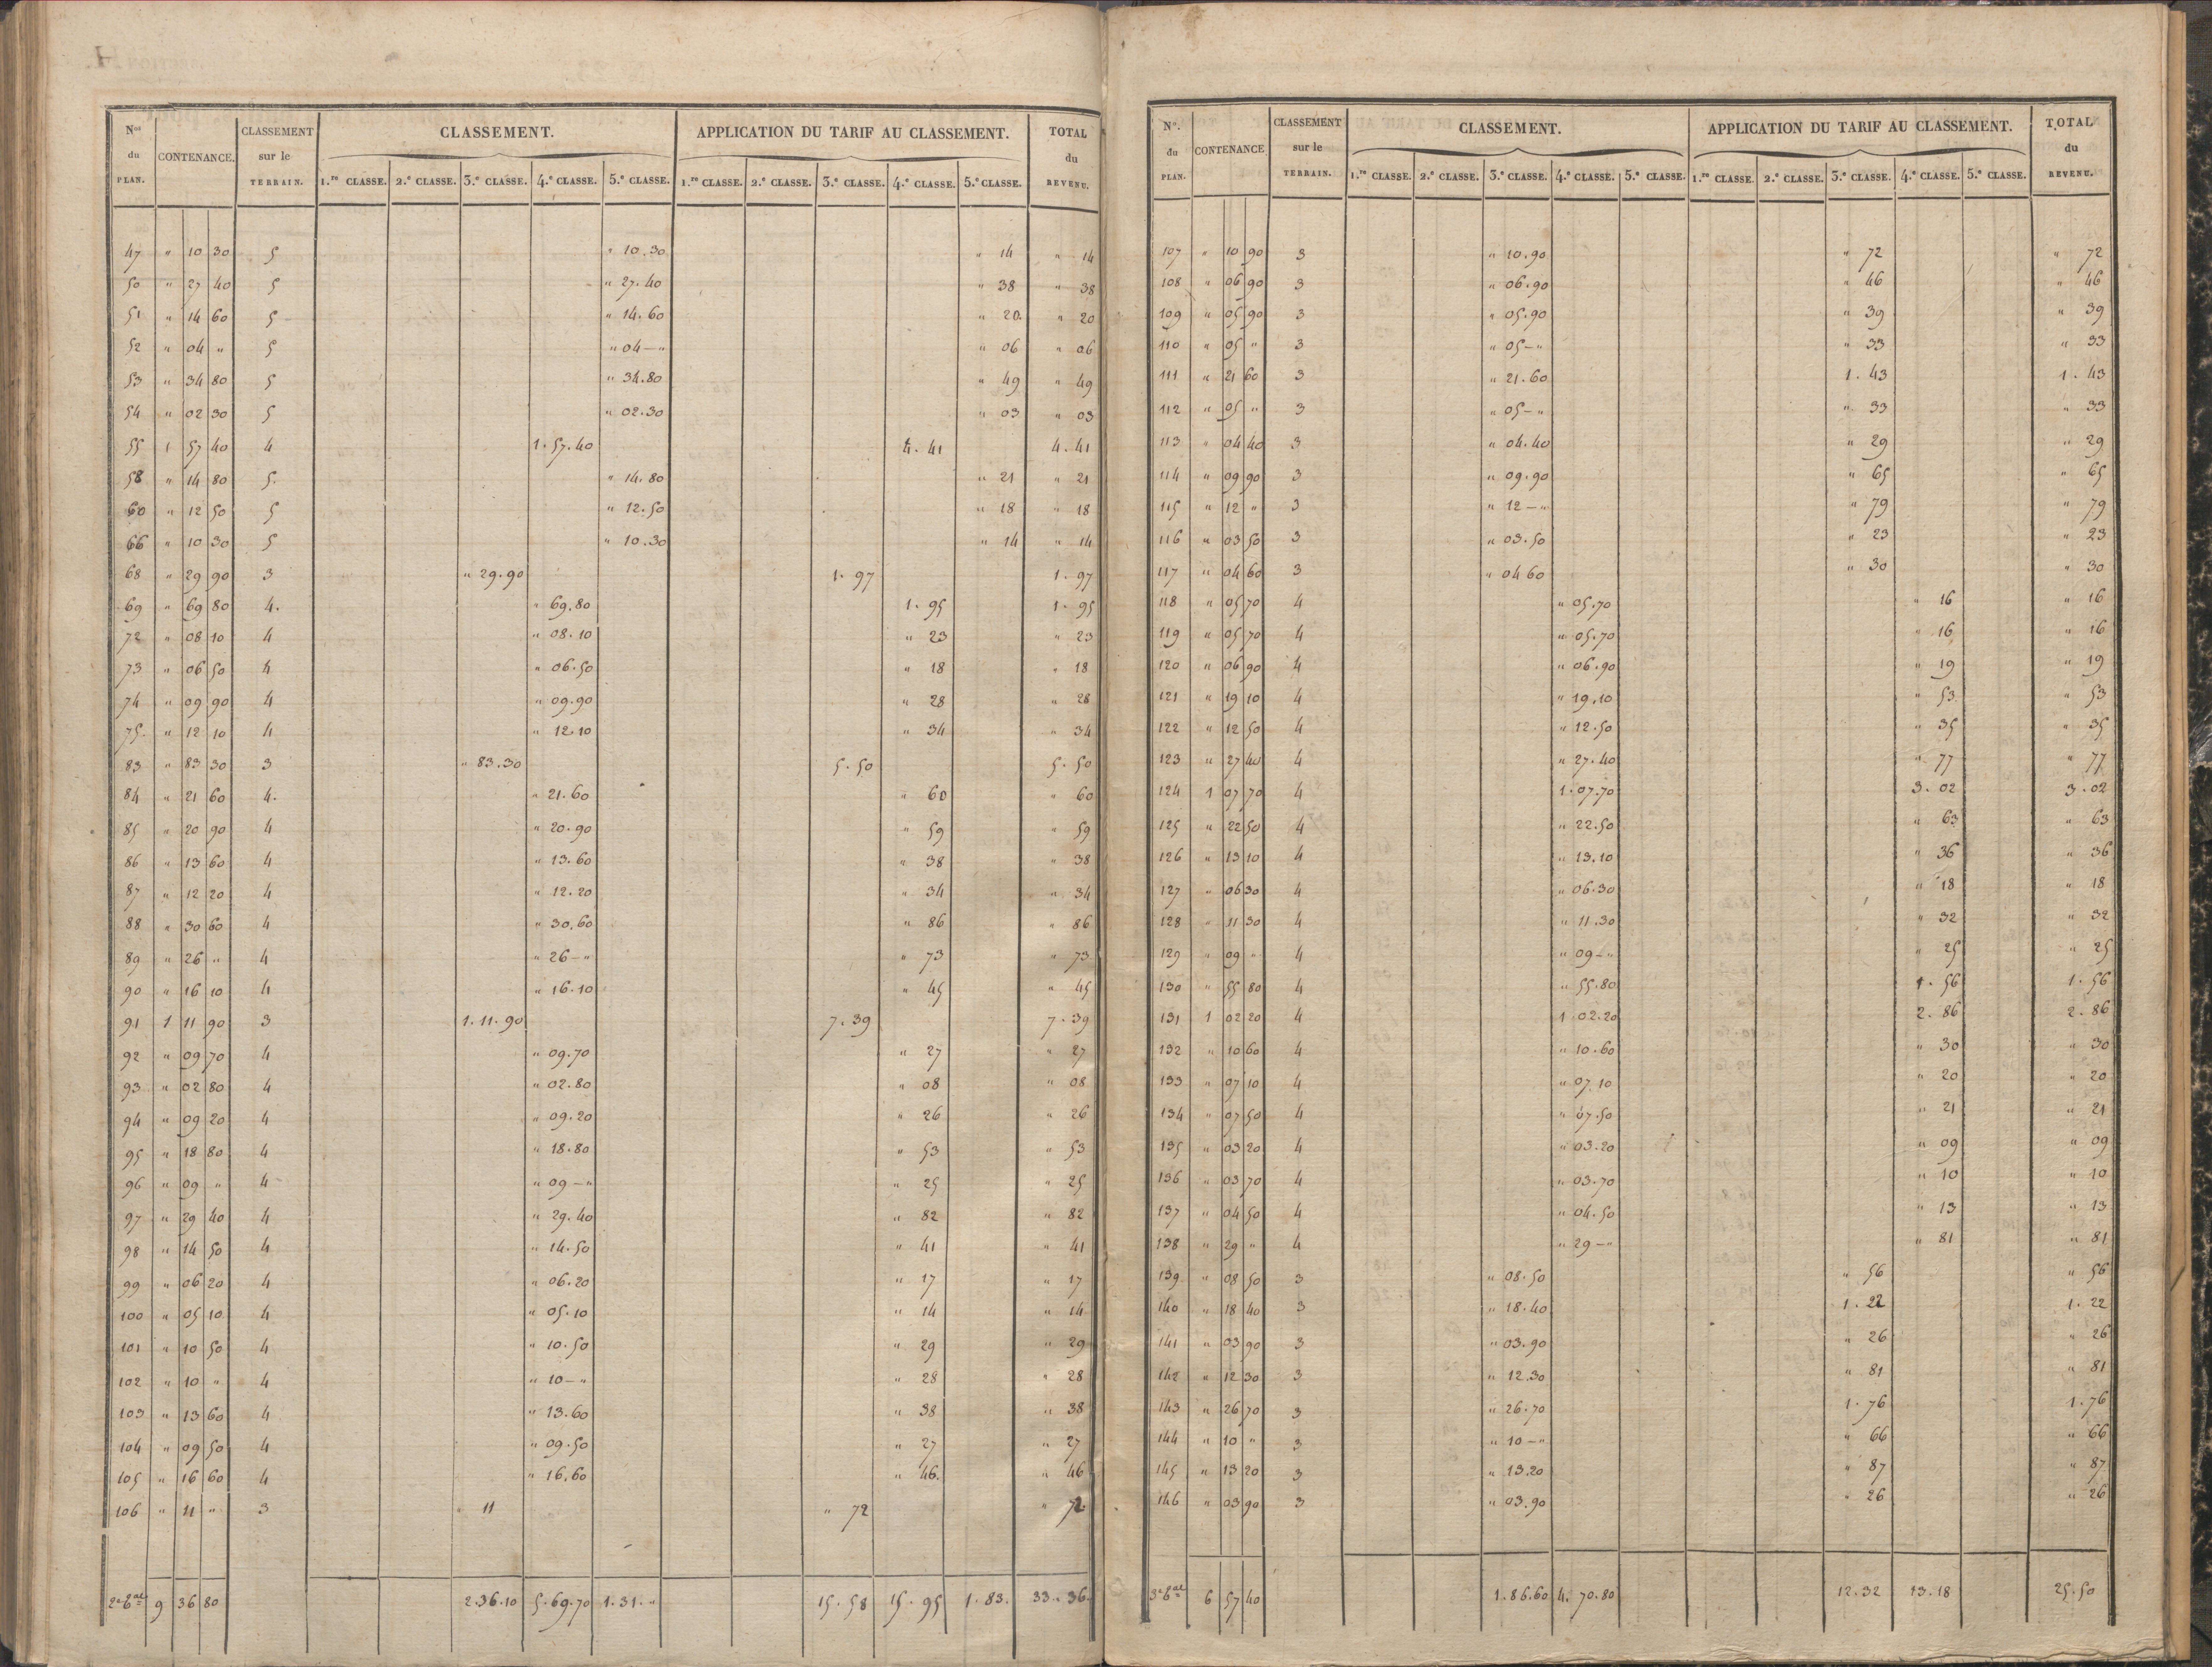 Nos du PLAN. CONTENANCE. CLASSEMENT sur le TERRAIN. CLASSEMENT. APPLICATION DU TARIF AU CLASSEMENT. TOTAL du REVENU.
1.re CLASSE. 2.e CLASSE. 3.e CLASSE. 4.e CLASSE. 5.e CLASSE. 1.re CLASSE. 2.e CLASSE. 3.e CLASSE. 4.e CLASSE. 5.e CLASSE.
47 " 10 30 5 " 10.30 " 14 " 14
50 " 27 40 5 " 27.40 " 38 " 38
51 " 14 60 5 " 14.60 " 20. " 20
52 " 04 " 5 " 04 - " " 06 " 06
53 " 34 80 5 " 34.80 " 49 " 49
54 " 02 30 5 " 02.30 " 03 " 03
55 1 57 40 4 1.57.40 4.41 4.41
58 " 14 80 5. " 14.80 " 21 " 21
60 " 12 50 5 " 12.50 " 18 " 18
66 " 10 30 5 " 10.30 " 14 " 14
68 " 29 90 3 " 29.90 1.97 1.97
69 " 69 80 4. " 69.80 1.95 1.95
72 " 08 10 4 " 08.10 " 23 " 23
73 " 06 50 4 " 06.50 " 18 " 18
74 " 09 90 4 " 09.90 " 28 " 28
75. " 12 10 4 " 12.10 " 34 " 34
83 " 83 30 3 " 83.30 5.50 5.50
84 " 21 60 4. " 21.60 " 60 " 60
85 " 20 90 4 " 20.90 " 59 " 59
86 " 13 60 4 " 13.60 " 38 " 38
87 " 12 20 4 " 12.20 " 34 " 34
88 " 30 60 4 " 30.60 " 86 " 86
89 " 26 " 4 " 26 - " " 73 " 73
90 " 16 10 4 " 16.10 " 45 " 45
91 1 11 90 3 1.11.90 7.39 7.39
92 " 09 70 4 " 09.70 " 27 " 27
93 " 02 80 4 " 02.80 " 08 " 08
94 " 09 20 4 " 09.20 " 26 " 26
95 " 18 80 4 " 18.80 " 53 " 53
96 " 09 " 4 " 09 - " " 25 " 25
97 " 29 40 4 " 29.40 " 82 " 82
98 " 14 50 4 " 14.50 " 41 " 41
99 " 06 20 4 " 06.20 " 17 " 17
100 " 05 10 4 " 05.10 " 14 " 14
101 " 10 50 4 " 10.50 " 29 " 29
102 " 10 " 4 " 10 - " " 28 " 28
103 " 13 60 4 " 13.60 " 38 " 38
104 " 09 50 4 " 09.50 " 27 " 27
105 " 16 60 4 " 16.60 " 46. " 46
106 " 11 " 3 " 11 " 72 " 72
9 36 80 2.36.10 5.69.70 1.31." 15.58 15.95 1.83. 33.36.
No. du PLAN. CONTENANCE CLASSEMENT sur le TERRAIN. CLASSEMENT. APPLICATION DU TARIF AU CLASSEMENT. TOTAL du REVENU.
1.re CLASSE. 2.e CLASSE. 3.e CLASSE. 4.e CLASSE. 5.e CLASSE. 1.re CLASSE. 2.e CLASSE. 3.e CLASSE. 4.e CLASSE. 5.e CLASSE.
107 " 10 90 3 " 10.90 " 72 " 72
108 " 06 90 3 " 06.90 " 46 " 46
109 " 05 90 3 " 05.90 " 39 " 39
110 " 05 " 3 " 05 - " " 33 " 33
111 " 21 60 3 " 21.60 1.43 1.43
112 " 05 " 3 " 05 - " " 33 " 33
113 " 04 40 3 " 04.40 " 29 " 29
114 " 09 90 3 " 09.90 " 65 " 65
115 " 12 " 3 " 12 - " " 79 " 79
116 " 03 50 3 " 03.50 " 23 " 23
117 " 04 60 3 " 04 60 " 30 " 30
118 " 05 70 4 " 05.70 " 16 " 16
119 " 05 70 4 " 05.70 " 16 " 16
120 " 06 90 4 " 06.90 " 19 " 19
121 " 19 10 4 " 19.10 " 53 " 53
122 " 12 50 4 " 12.50 " 35 " 35
123 " 27 40 4 " 27.40 " 77 " 77
124 1 07 70 4 1.07.70 3.02 3.02
125 " 22 50 4 " 22.50 " 63 " 63
126 " 13 10 4 " 13.10 " 36 " 36
127 " 06 30 4 " 06.30 " 18 " 18
128 " 11 30 4 " 11.30 " 32 " 32
129 " 09 " 4 " 09 - " " 25 " 25
130 " 55 80 4 " 55.80 1.56 1.56
131 1 02 20 4 1.02.20 2.86 2.86
132 " 10 60 4 " 10.60 " 30 " 30
133 " 07 10 4 " 07.10 " 20 " 20
134 " 07 50 4 " 07.50 " 21 " 21
135 " 03 20 4 " 03.20 " 09 " 09
136 " 03 70 4 " 03.70 " 10 " 10
137 " 04 50 4 " 04.50 " 13 " 13
138 " 29 " 4 " 29 - " " 81 " 81
139 " 08 50 3 " 08.50 " 56 " 56
140 " 18 40 3 " 18.40 1.22 1.22
141 " 03 90 3 " 03.90 " 26 " 26
142 " 12 30 3 " 12.30 " 81 " 81
143 " 26 70 3 " 26.70 1.76 1.76
144 " 10 " 3 " 10 - " " 66 " 66
145 " 13 20 3 " 13.20 " 87 " 87
146 " 03 90 3 " 03.90 " 26 " 26
6 57 40 1.86.60 4.70.80 12.32 13.18 25.50